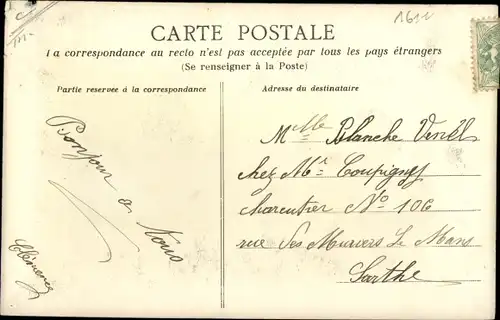 1612
CARTE POSTALE
La correspondance au recto n'est pas acceptée par tous les pays étrangers
(Se renseigner à la Poste)
Partie reservée à la correspondance
Adresse du destinataire
Bonjour à
Tous
Clémence
Mlle Blanche
chez Mr Coupigny
charcutier No 106
rue des Le Mans
Sarthe